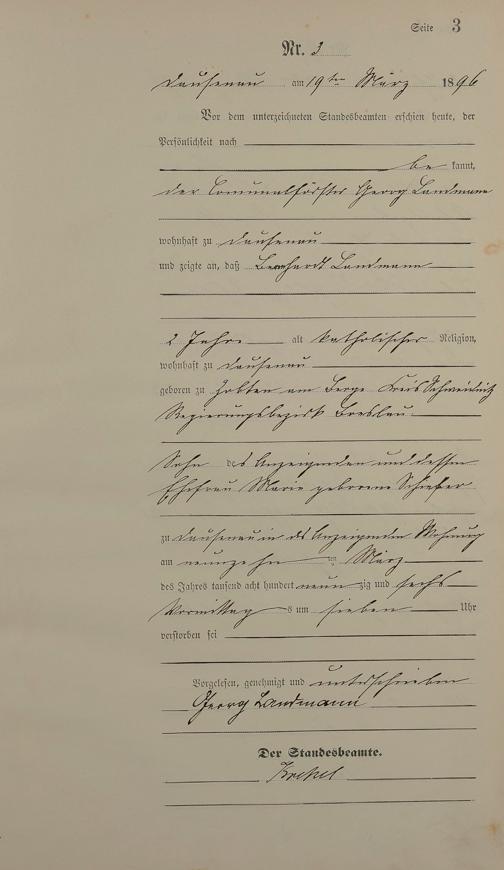 Seite 3
Nr. 3
Dausenau am 19ten März 1896
Vor dem unterzeichneten Standesbeamten erschien heute, der
Persönlichkeit nach
be kannt,
der Communalförster Georg Landmann
wohnhaft zu Dausenau
und zeigte an, daß Bernhardt Landmann
2 Jahre alt katholischer Religion,
wohnhaft zu Dausenau
geboren zu Zobten am Berge Kreis Schweidnitz
Regierungsbezirk Breslau
Sohn des Anzeigenden und dessen
Ehefrau Marie geborene
zu Dausenau in des Anzeigenden Wohnung
am neunzehn ten März
des Jahres tausend acht hundert neunzig und sechs
Vormittags um sieben Uhr
verstorben sei
Vorgelesen, genehmigt und unterschrieben
Georg Landmann
Der Standesbeamte.